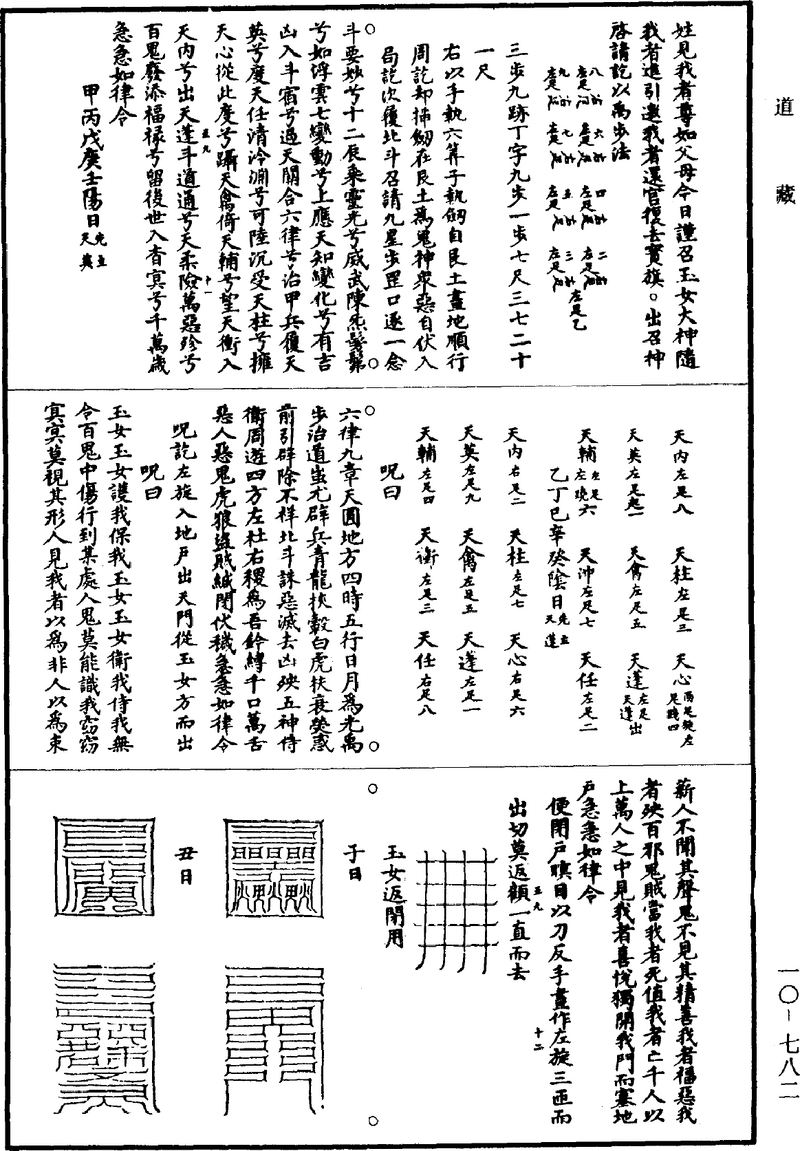 道藏
姓見我者尊如父母今日謹召玉女大神隨
我者進引邀我者還官復去寶旗。出召神
啓請訖以為步法
三步九跡丁字九步一步七尺三七二十
一尺
右以手執六筭子執劒自艮土畫地順行
周訖却揷劒在艮土為鬼神衆惡自伏入
局訖次履北斗召請九星步罡口逐一念
斗要妙兮十二辰乘靈光兮威武陳炁髣髴
兮如浮雲七變動兮上應天知變化兮有吉
凶入斗宿兮過天關合六律兮治甲兵履天
英兮度天任清泠淵兮可陸沉受天柱兮擁
天心從此度兮躡天禽倚天輔兮望天衝入
天內兮出天蓬斗道通兮天柔險萬惡殄兮
百鬼廢添福祿兮留後世入杳冥兮千萬歲
急急如律令
甲丙戊庚壬陽日先立天英
天內左足八 天柱左足三 天心兩足旋左足踐四
天英左足起一 天禽左足五 天蓬左足天蓬出
天輔左足左曉六 天冲左足七 天任左足二
乙丁巳辛癸陰日先立天蓬
天內右足二 天柱左足七 天心右足六
天英左足九 天禽左足五 天蓬左足一
天輔左足四 天衝左足三 天任右足八
呪曰
六律九章天圓地方四時五行日月為光禹
步治道蚩尤辟兵青龍挾轂白虎扶衰熒惑
前引辟除不祥北斗誅惡滅去凶殃五神侍
衛周遊四方左社右稷為吾鈐縛千口萬舌
惡人惡鬼虎狼盜賊緘閉伏穢急急如律令
呪訖左旋入地戶出天門從玉女方而出
呪曰
玉女玉女護我保我玉女玉女衛我侍我無
令百鬼中傷行到某處人鬼莫能識我窈窈
冥冥莫視其形人見我者以為非人以為束
薪人不聞其聲鬼不見其精喜我者福惡我
者殃百邪鬼賊當我者死值我者亡千人以
上萬人之中見我者喜悅獨開我門而塞地
戶急急如律令
便閉戶瞑目以刀反手畫作左旋三匝而
出切莫返顧一直而去
玉女返閉用
子日
丑日
五九
十一
五九
十二
一〇-七八二